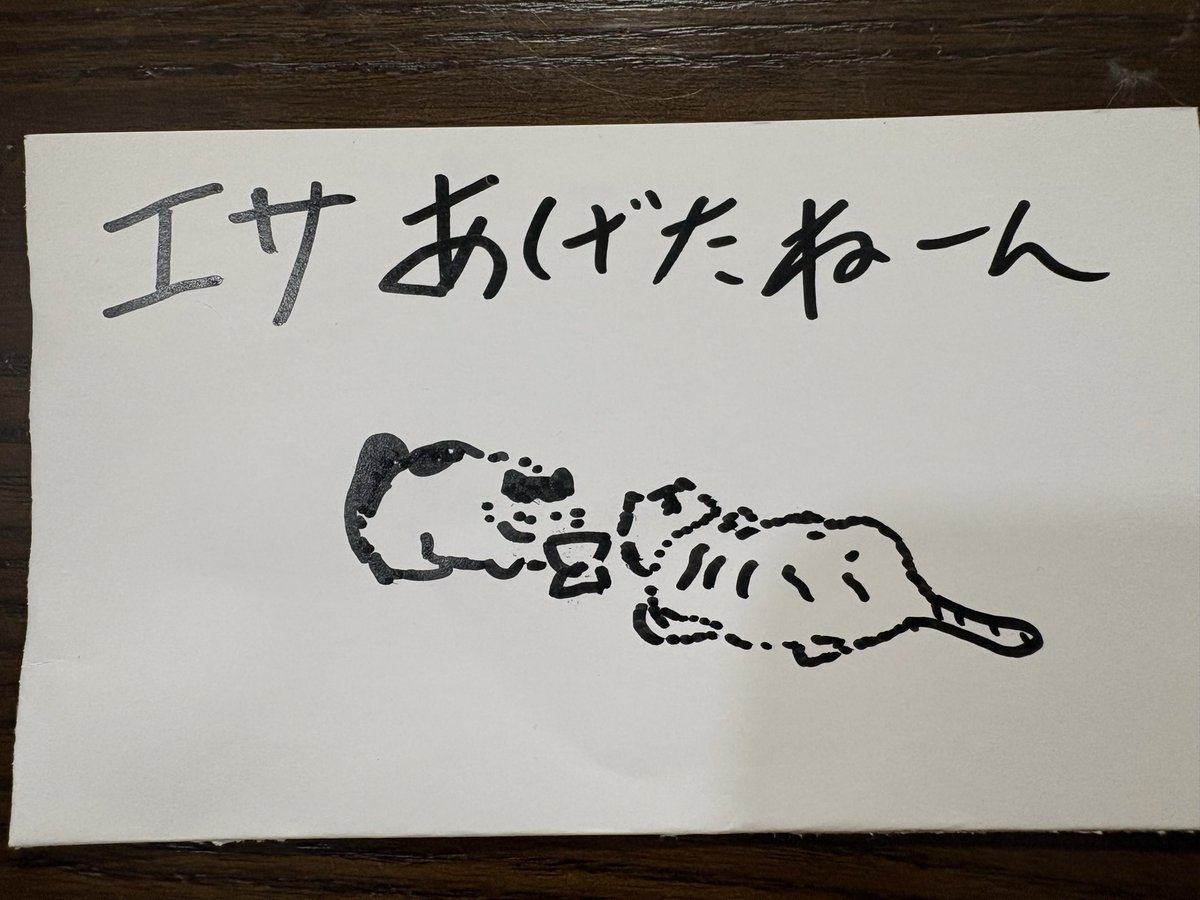 エサ あげたねーん